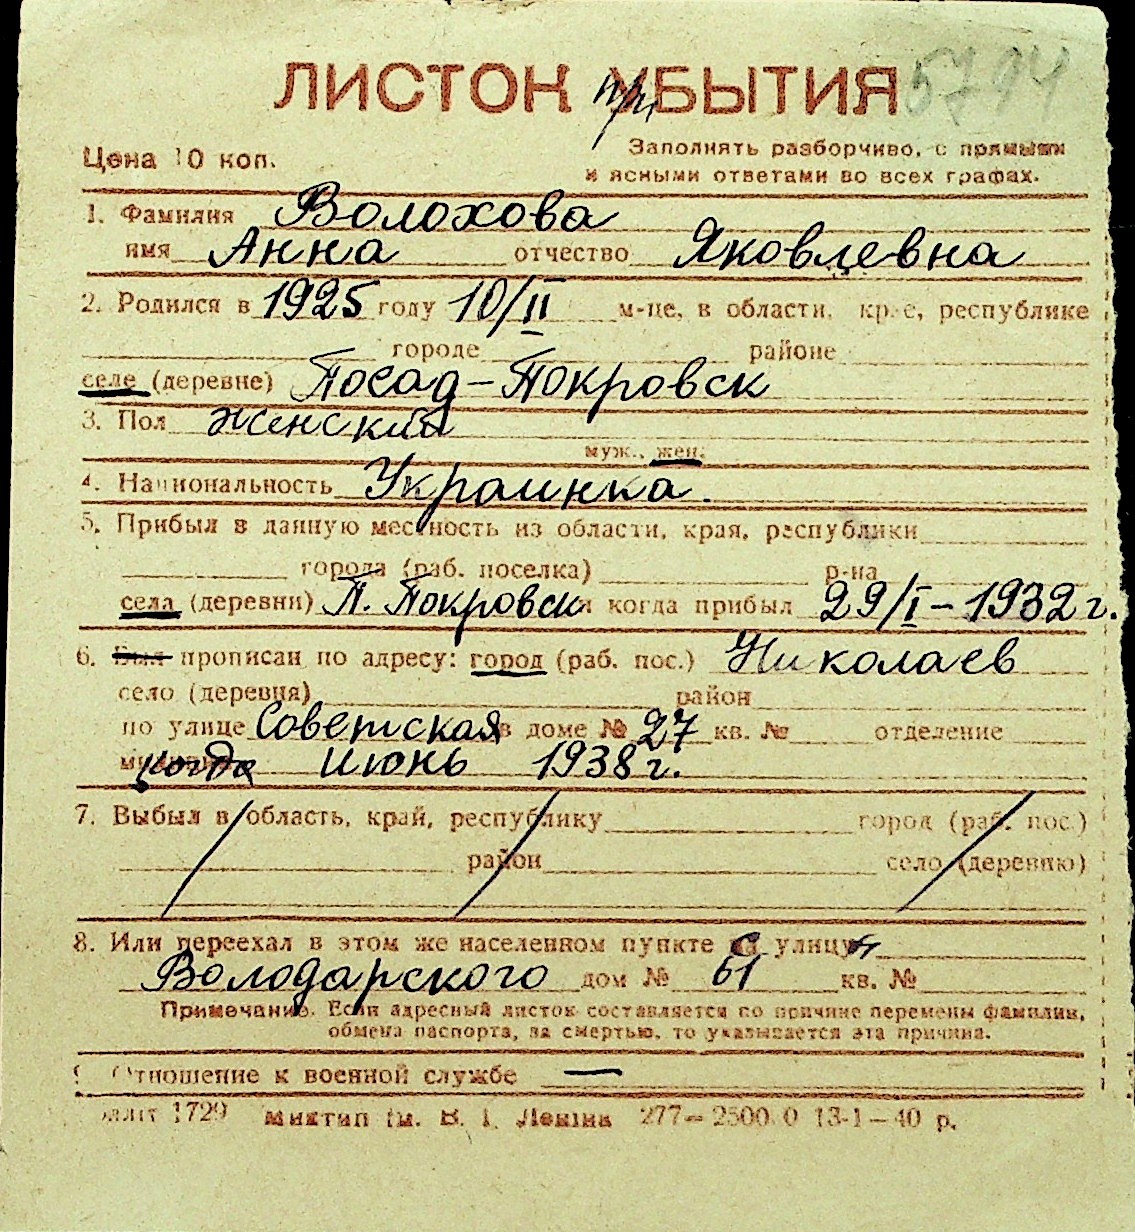 5794
ЛИСТОК при УБЫТИЯ
Цена 10 коп.
Заполнять разборчиво, с прямыми
и ясными ответами во всех графах.
1. Фамилия Волохова
имя Анна отчество Яковлевна
2. Родился в 1925 году 10/II м-це, в области, кр.е, республике
городе районе
селе (деревне) Посад-Покровск
3. Пол женский
муж., жен.
4. Национальность Украинка.
5. Прибыл в данную местность из области, края, республики
города (раб. поселка) р-на
села (деревни) П. Покровск и когда прибыл 29/I-1932 г.
6. Был прописан по адресу: город (раб. пос.) Николаев
село (деревня) район
по улице Советская в доме № 27 кв. № отделение
когда июнь 1938 г.
7. Выбыл в область, край, республику город (раб. пос.)
район село (деревню)
8. Или переехал в этом же населенном пункте с улицы
Володарского дом № 61 кв. №
Примечание. Если адресный листок составляется по причине перемены фамилии,
обмена паспорта, за смертью, то указывается эта причина.
9 Отношение к военной службе —
1729 Миктип им. В. І. Леніна 277—2500.0 13-1—40 р.